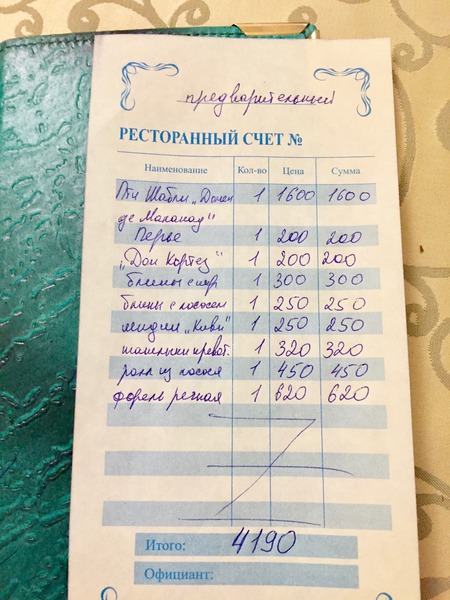 предварительный
РЕСТОРАННЫЙ СЧЕТ №
Наименование Кол-во Цена Сумма
Пти Шабли „Домен 1 1600 1600
де Маланд"
Перье 1 200 200
„Дон Кортез" 1 200 200
блины с икр 1 300 300
блины с лососем 1 250 250
мидии „Киви" 1 250 250
шашлычки кревет. 1 320 320
ролл из лосося 1 450 450
форель речная 1 620 620
Итого: 4190
Официант: